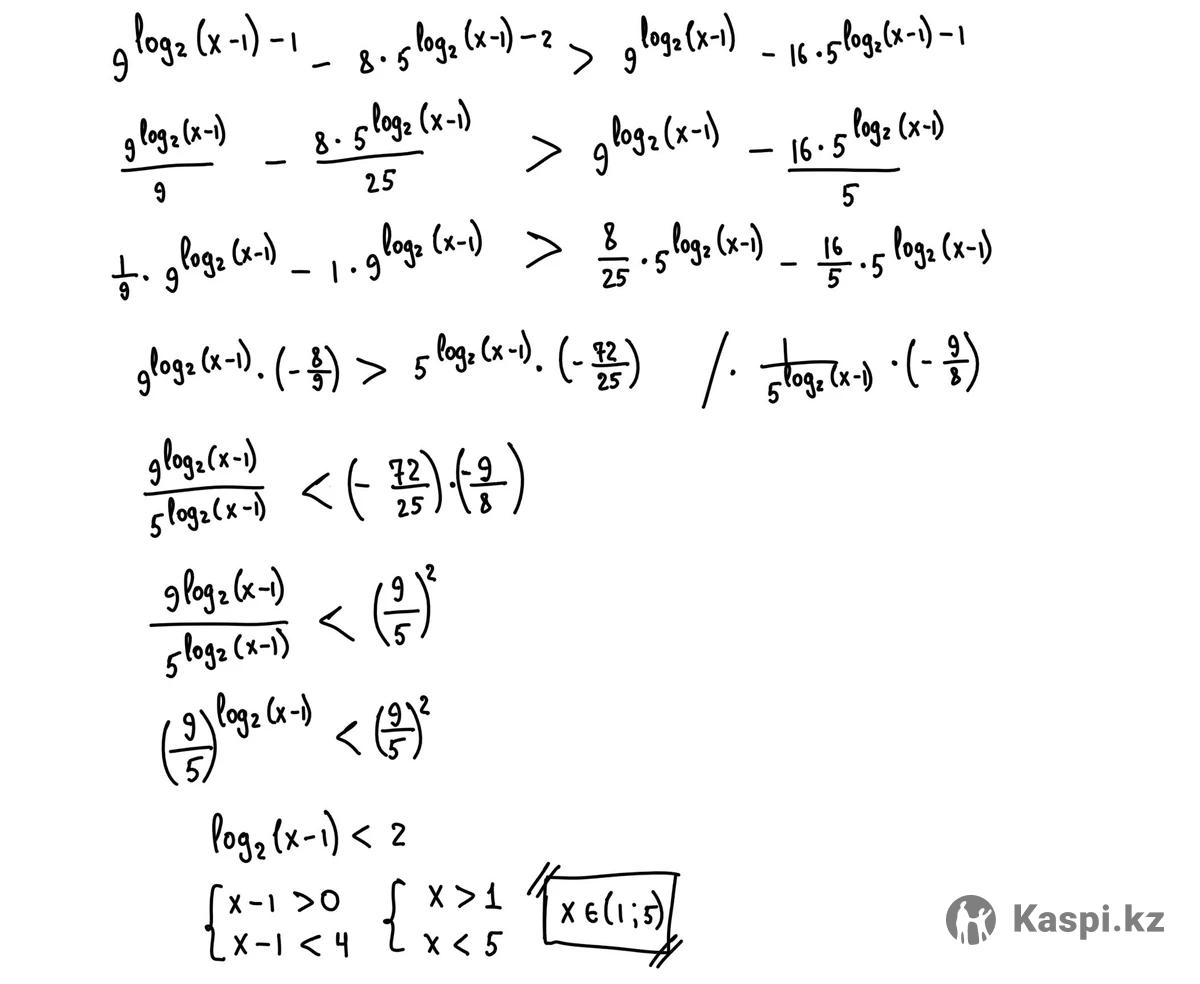 9^{log₂(x-1)-1} - 8·5^{log₂(x-1)-2} > 9^{log₂(x-1)} - 16·5^{log₂(x-1)-1}
\frac{9^{log₂(x-1)}}{9} - \frac{8·5^{log₂(x-1)}}{25} > 9^{log₂(x-1)} - \frac{16·5^{log₂(x-1)}}{5}
\frac{1}{9}·9^{log₂(x-1)} - 1·9^{log₂(x-1)} > \frac{8}{25}·5^{log₂(x-1)} - \frac{16}{5}·5^{log₂(x-1)}
9^{log₂(x-1)}·(-\frac{8}{9}) > 5^{log₂(x-1)}·(-\frac{72}{25}) /·\frac{1}{5^{log₂(x-1)}}·(-\frac{9}{8})
\frac{9^{log₂(x-1)}}{5^{log₂(x-1)}} < (-\frac{72}{25})·(-\frac{9}{8})
\frac{9^{log₂(x-1)}}{5^{log₂(x-1)}} < (\frac{9}{5})^2
(\frac{9}{5})^{log₂(x-1)} < (\frac{9}{5})^2
log₂(x-1) < 2
{ x-1 > 0 { x > 1
x-1 < 4 x < 5
x ∈ (1;5)
Kaspi.kz